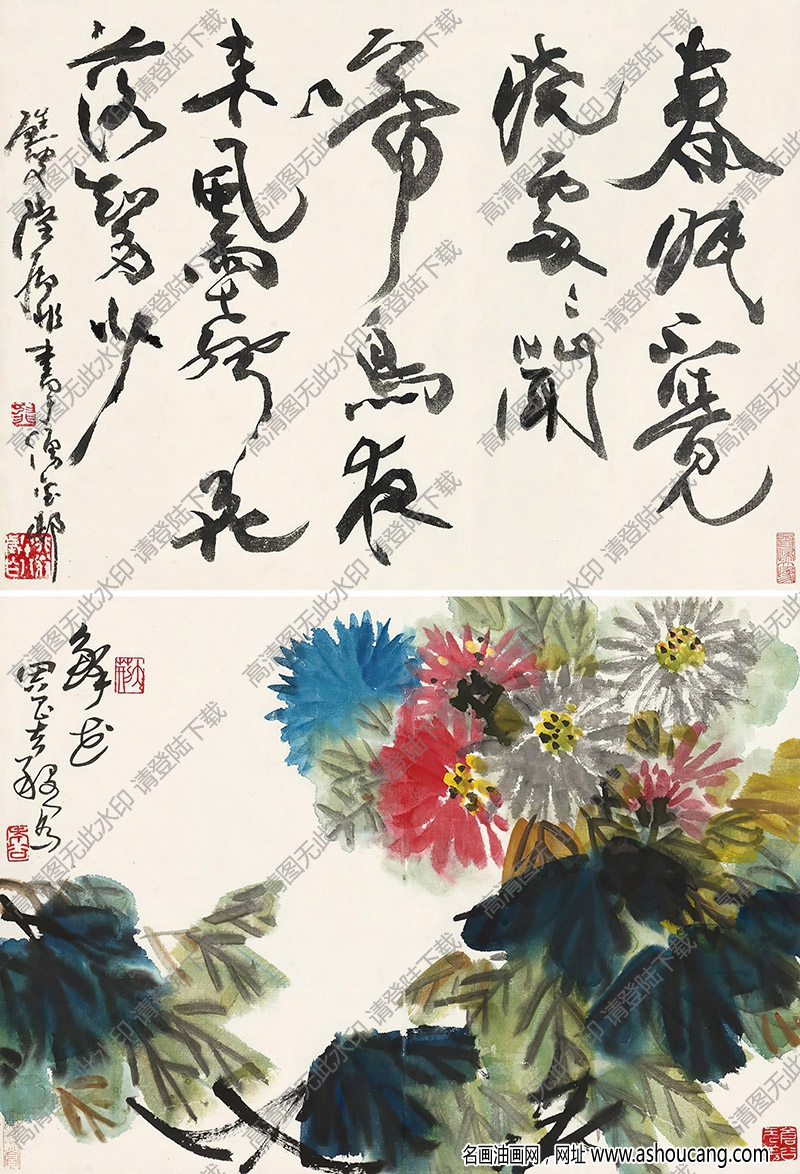 春眠不覺
曉處〻聞
啼鳥夜
來風雨聲花
落知多少
陸抑非書
周昌谷
高清图无此水印 请登陆下载
名画油画网，网址 www.ashoucang.com